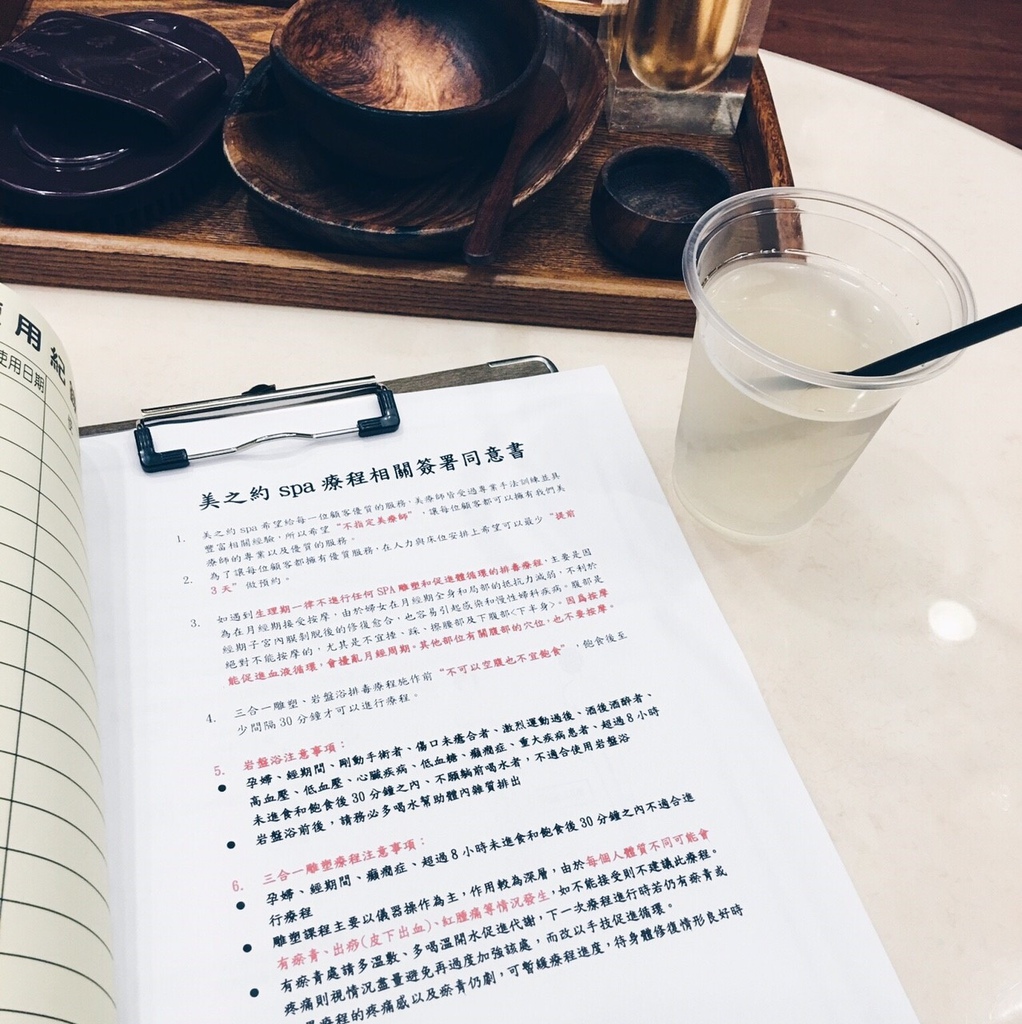 用紀
使用日期
美之約 spa 療程相關簽署同意書
1. 美之約 spa 希望給每一位顧客優質的服務，美療師皆受過專業手法訓練並具
豐富相關經驗，所以希望“不指定美療師”，讓每位顧客都可以擁有我們美
療師的專業以及優質的服務。
2. 為了讓每位顧客都擁有優質服務，在人力與床位安排上希望可以最少“提前
3 天”做預約。
3. 如遇到生理期一律不進行任何 SPA 雕塑和促進體循環的排毒療程，主要是因
為在月經期接受按摩，由於婦女在月經期全身和局部的抵抗力減弱，不利於
經期子宮內膜剝脫後的修復愈合，也容易引起感染和慢性婦科疾病。腹部是
絕對不能按摩的，尤其是不宜捶、踩、擦腰部及下腹部<下半身>。因為按摩
能促進血液循環，會擾亂月經周期。其他部位有關腹部的穴位，也不要按摩。
4. 三合一雕塑、岩盤浴排毒療程施作前“不可以空腹也不宜飽食”，飽食後至
少間隔 30 分鐘才可以進行療程。
5. 岩盤浴注意事項：
● 孕婦、經期間、剛動手術者、傷口未癒合者、激烈運動過後、酒後酒醉者、
高血壓、低血壓、心臟疾病、低血糖、癲癇症、重大疾病患者、超過 8 小時
未進食和飽食後 30 分鐘之內、不願躺前喝水者，不適合使用岩盤浴
● 岩盤浴前後，請務必多喝水幫助體內雜質排出
6. 三合一雕塑療程注意事項：
● 孕婦、經期間、癲癇症、超過 8 小時未進食和飽食後 30 分鐘之內不適合進
行療程
● 雕塑課程主要以儀器操作為主，作用較為深層，由於每個人體質不同可能會
有瘀青、出痧(皮下出血)、紅腫痛等情況發生，如不能接受則不建議此療程。
● 有瘀青處請多溫敷、多喝溫開水促進代謝，下一次療程進行時若仍有瘀青或
疼痛則視情況盡量避免再過度加強該處，而改以手技促進循環。
程的疼痛感以及瘀青仍劇，可暫緩療程進度，待身體修復情形良好時